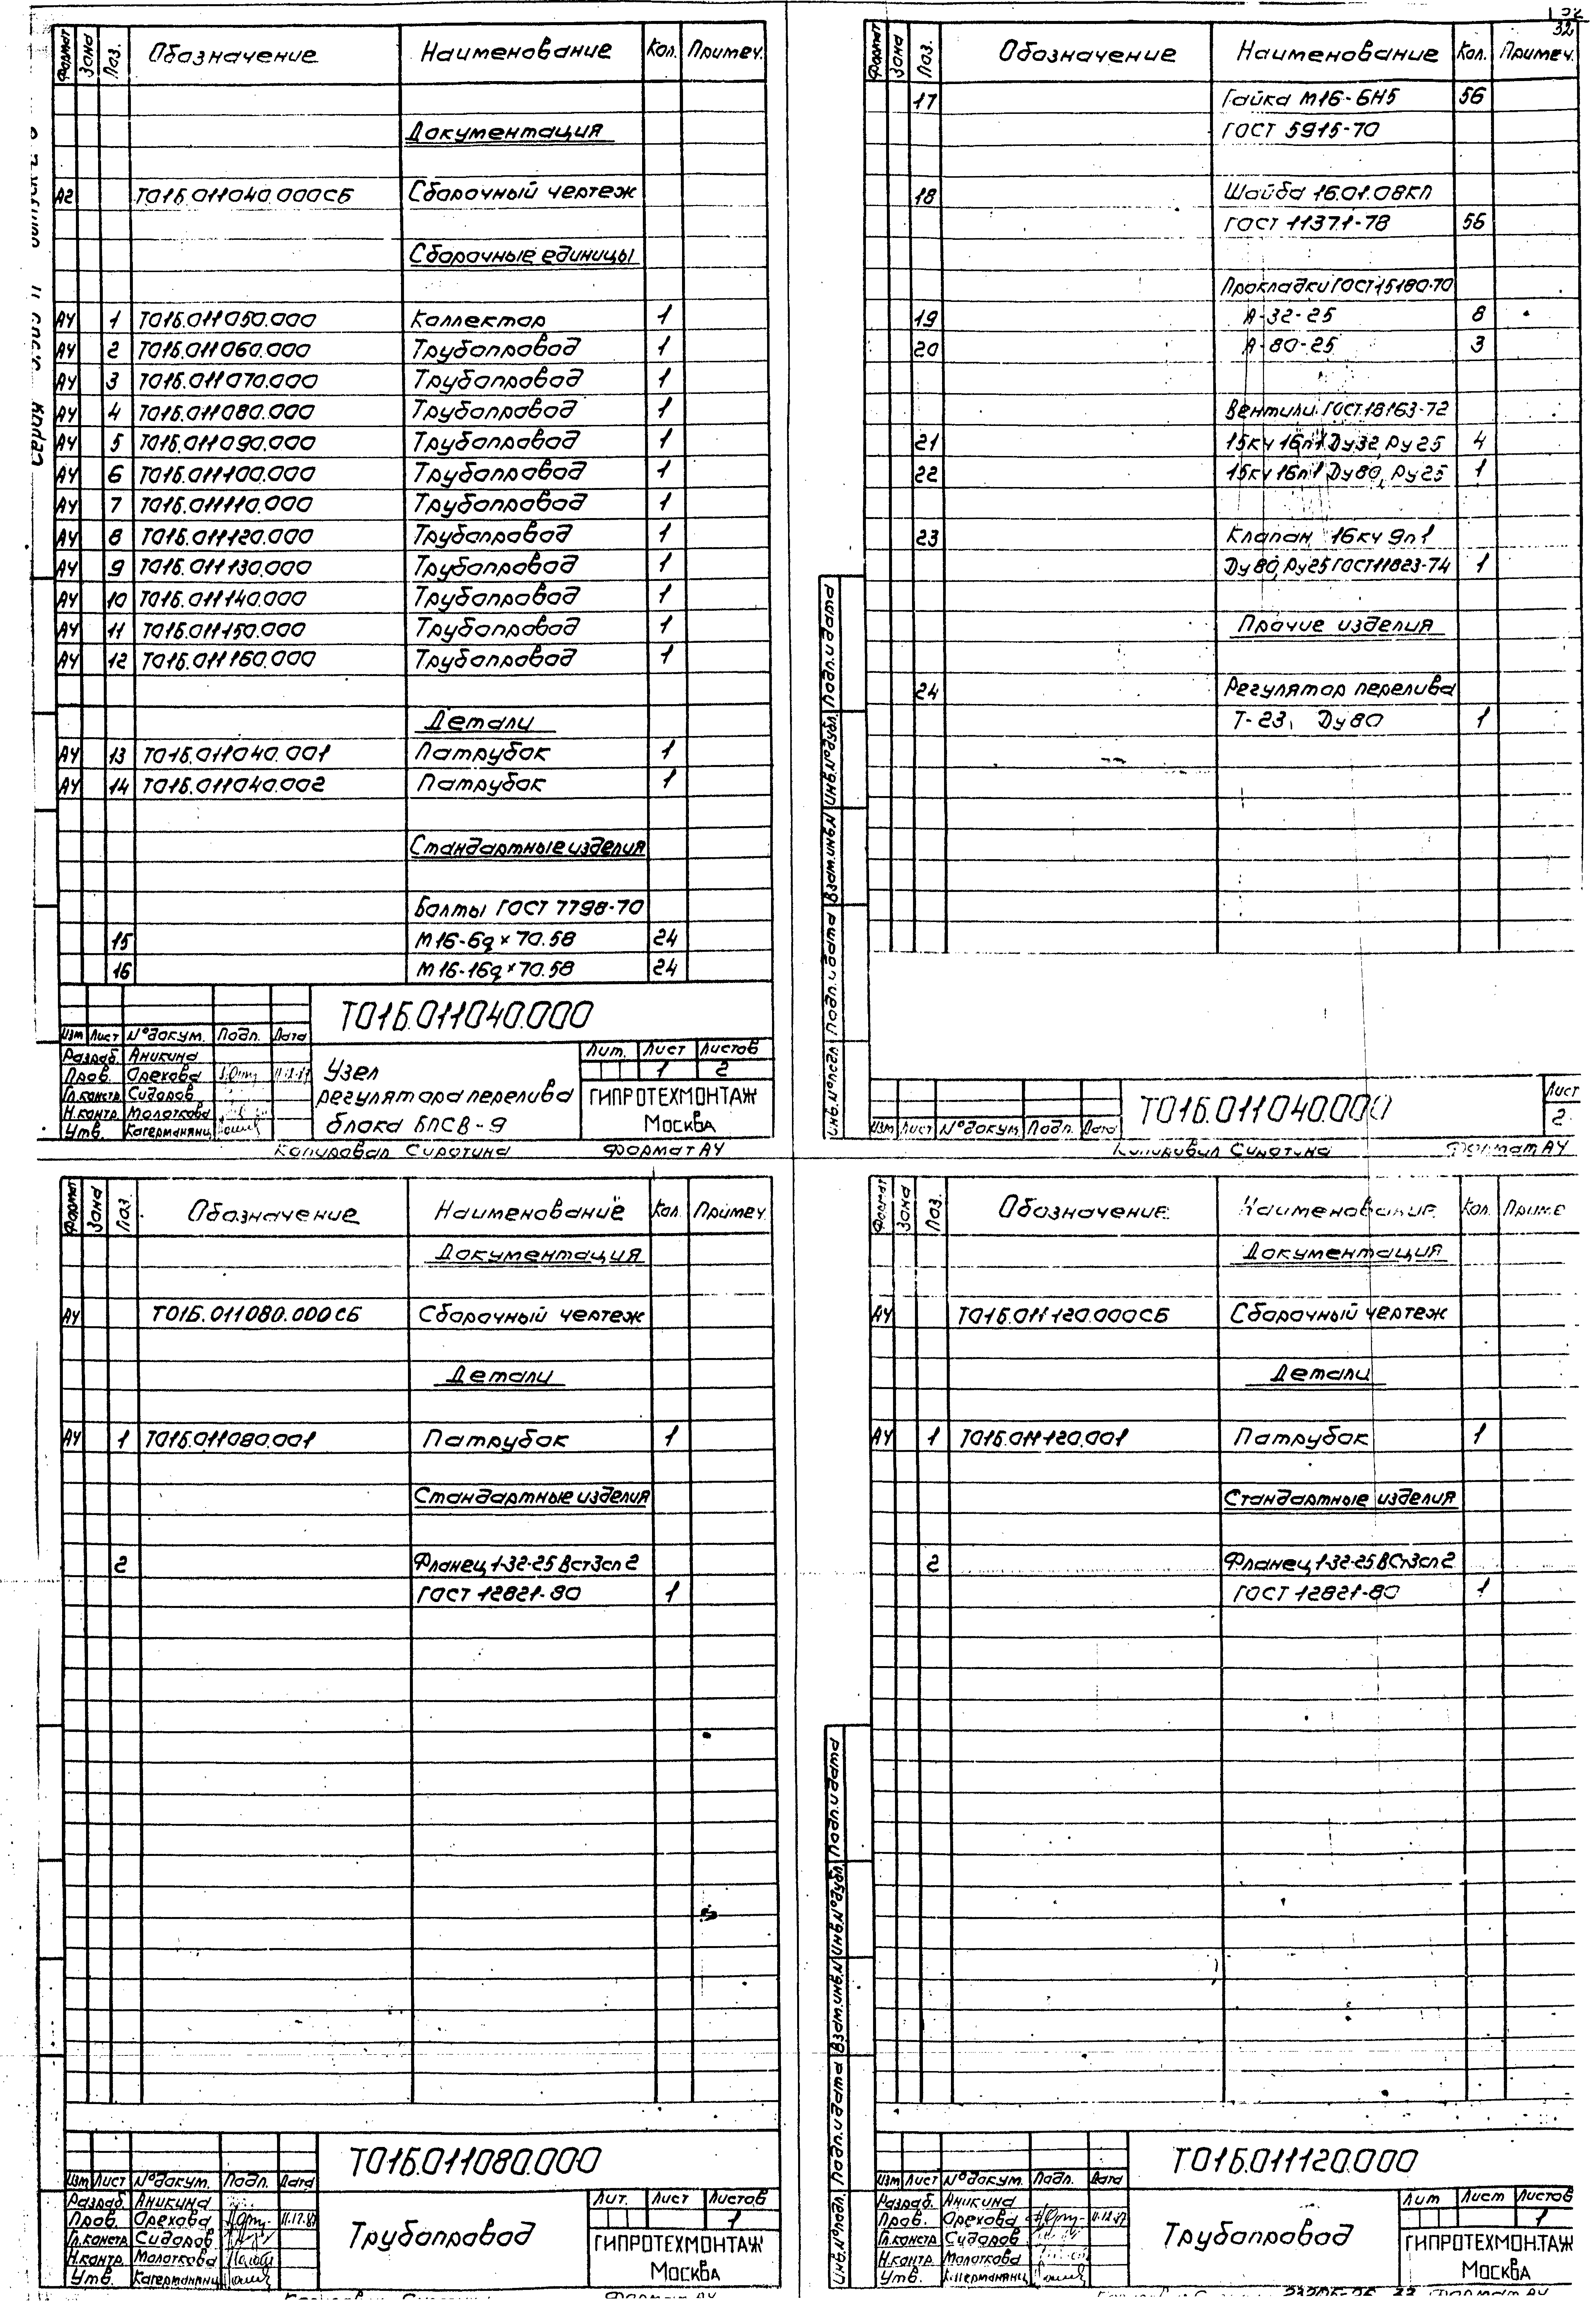 32
Формат Зона Поз. Обозначение Наименование Кол. Примеч.
Документация
А2 Т01Б.011040.000СБ Сборочный чертеж
Сборочные единицы
А4 1 Т01Б.011050.000 Коллектор 1
А4 2 Т01Б.011060.000 Трубопровод 1
А4 3 Т01Б.011070.000 Трубопровод 1
А4 4 Т01Б.011080.000 Трубопровод 1
А4 5 Т01Б.011090.000 Трубопровод 1
А4 6 Т01Б.011100.000 Трубопровод 1
А4 7 Т01Б.011110.000 Трубопровод 1
А4 8 Т01Б.011120.000 Трубопровод 1
А4 9 Т01Б.011130.000 Трубопровод 1
А4 10 Т01Б.011140.000 Трубопровод 1
А4 11 Т01Б.011150.000 Трубопровод 1
А4 12 Т01Б.011160.000 Трубопровод 1
Детали
А4 13 Т01Б.011040.001 Патрубок 1
А4 14 Т01Б.011040.002 Патрубок 1
Стандартные изделия
Болты ГОСТ 7798-70
15 М16-6g×70.58 24
16 М16-16g×70.58 24
Т01Б.011040.000
Изм Лист №докум. Подп. Дата
Разраб. Аникина
Пров. Орехова
Гл.констр. Сидоров
Н.контр. Молоткова
Утв. Кагерманянц
Узел
регулятора перелива
блока БПСВ-9
Лит. Лист Листов
1 2
ГИПРОТЕХМОНТАЖ
Москва
Копировал Сиротина Формат А4
Формат Зона Поз. Обозначение Наименование Кол. Примеч.
17 Гайка М16-6Н5 56
ГОСТ 5915-70
18 Шайба 16.01.08КП
ГОСТ 11371-78 56
Прокладки ГОСТ 15180-70
19 А-32-25 8
20 А-80-25 3
Вентили ГОСТ 18163-72
21 15кч 16п1 Ду32, Ру25 4
22 15кч 16п1 Ду80, Ру25 1
23 Клапан 16кч 9п1
Ду80, Ру25 ГОСТ 11823-74 1
Прочие изделия
24 Регулятор перелива
Т-23, Ду80 1
Инв.№подл. Подп. и дата Взам.инв.№ Инв.№дубл. Подп. и дата
Т01Б.011040.000
Изм Лист №докум. Подп. Дата
Лист
2
Копировал Сиротина Формат А4
Формат Зона Поз. Обозначение Наименование Кол. Примеч.
Документация
А4 Т01Б.011080.000СБ Сборочный чертеж
Детали
А4 1 Т01Б.011080.001 Патрубок 1
Стандартные изделия
2 Фланец 1-32-25 Вст3сп2
ГОСТ 12821-80 1
Т01Б.011080.000
Изм Лист №докум. Подп. Дата
Разраб. Аникина
Пров. Орехова 11.12.87
Гл.констр. Сидоров
Н.контр. Молоткова
Утв. Кагерманянц
Трубопровод
Лит. Лист Листов
1
ГИПРОТЕХМОНТАЖ
Москва
Формат А4
Формат Зона Поз. Обозначение Наименование Кол. Приме
Документация
А4 Т01Б.011120.000СБ Сборочный чертеж
Детали
А4 1 Т01Б.011120.001 Патрубок 1
Стандартные изделия
2 Фланец 1-32-25 ВСт3сп2
ГОСТ 12821-80 1
Инв.№подл. Подп. и дата Взам.инв.№ Инв.№дубл. Подп. и дата
Т01Б.011120.000
Изм Лист №докум. Подп. Дата
Разраб. Аникина
Пров. Орехова 11.12.87
Гл.констр Сидоров
Н.контр. Молоткова
Утв. Кагерманянц
Трубопровод
Лит Лист Листов
1
ГИПРОТЕХМОНТАЖ
Москва
Формат А4